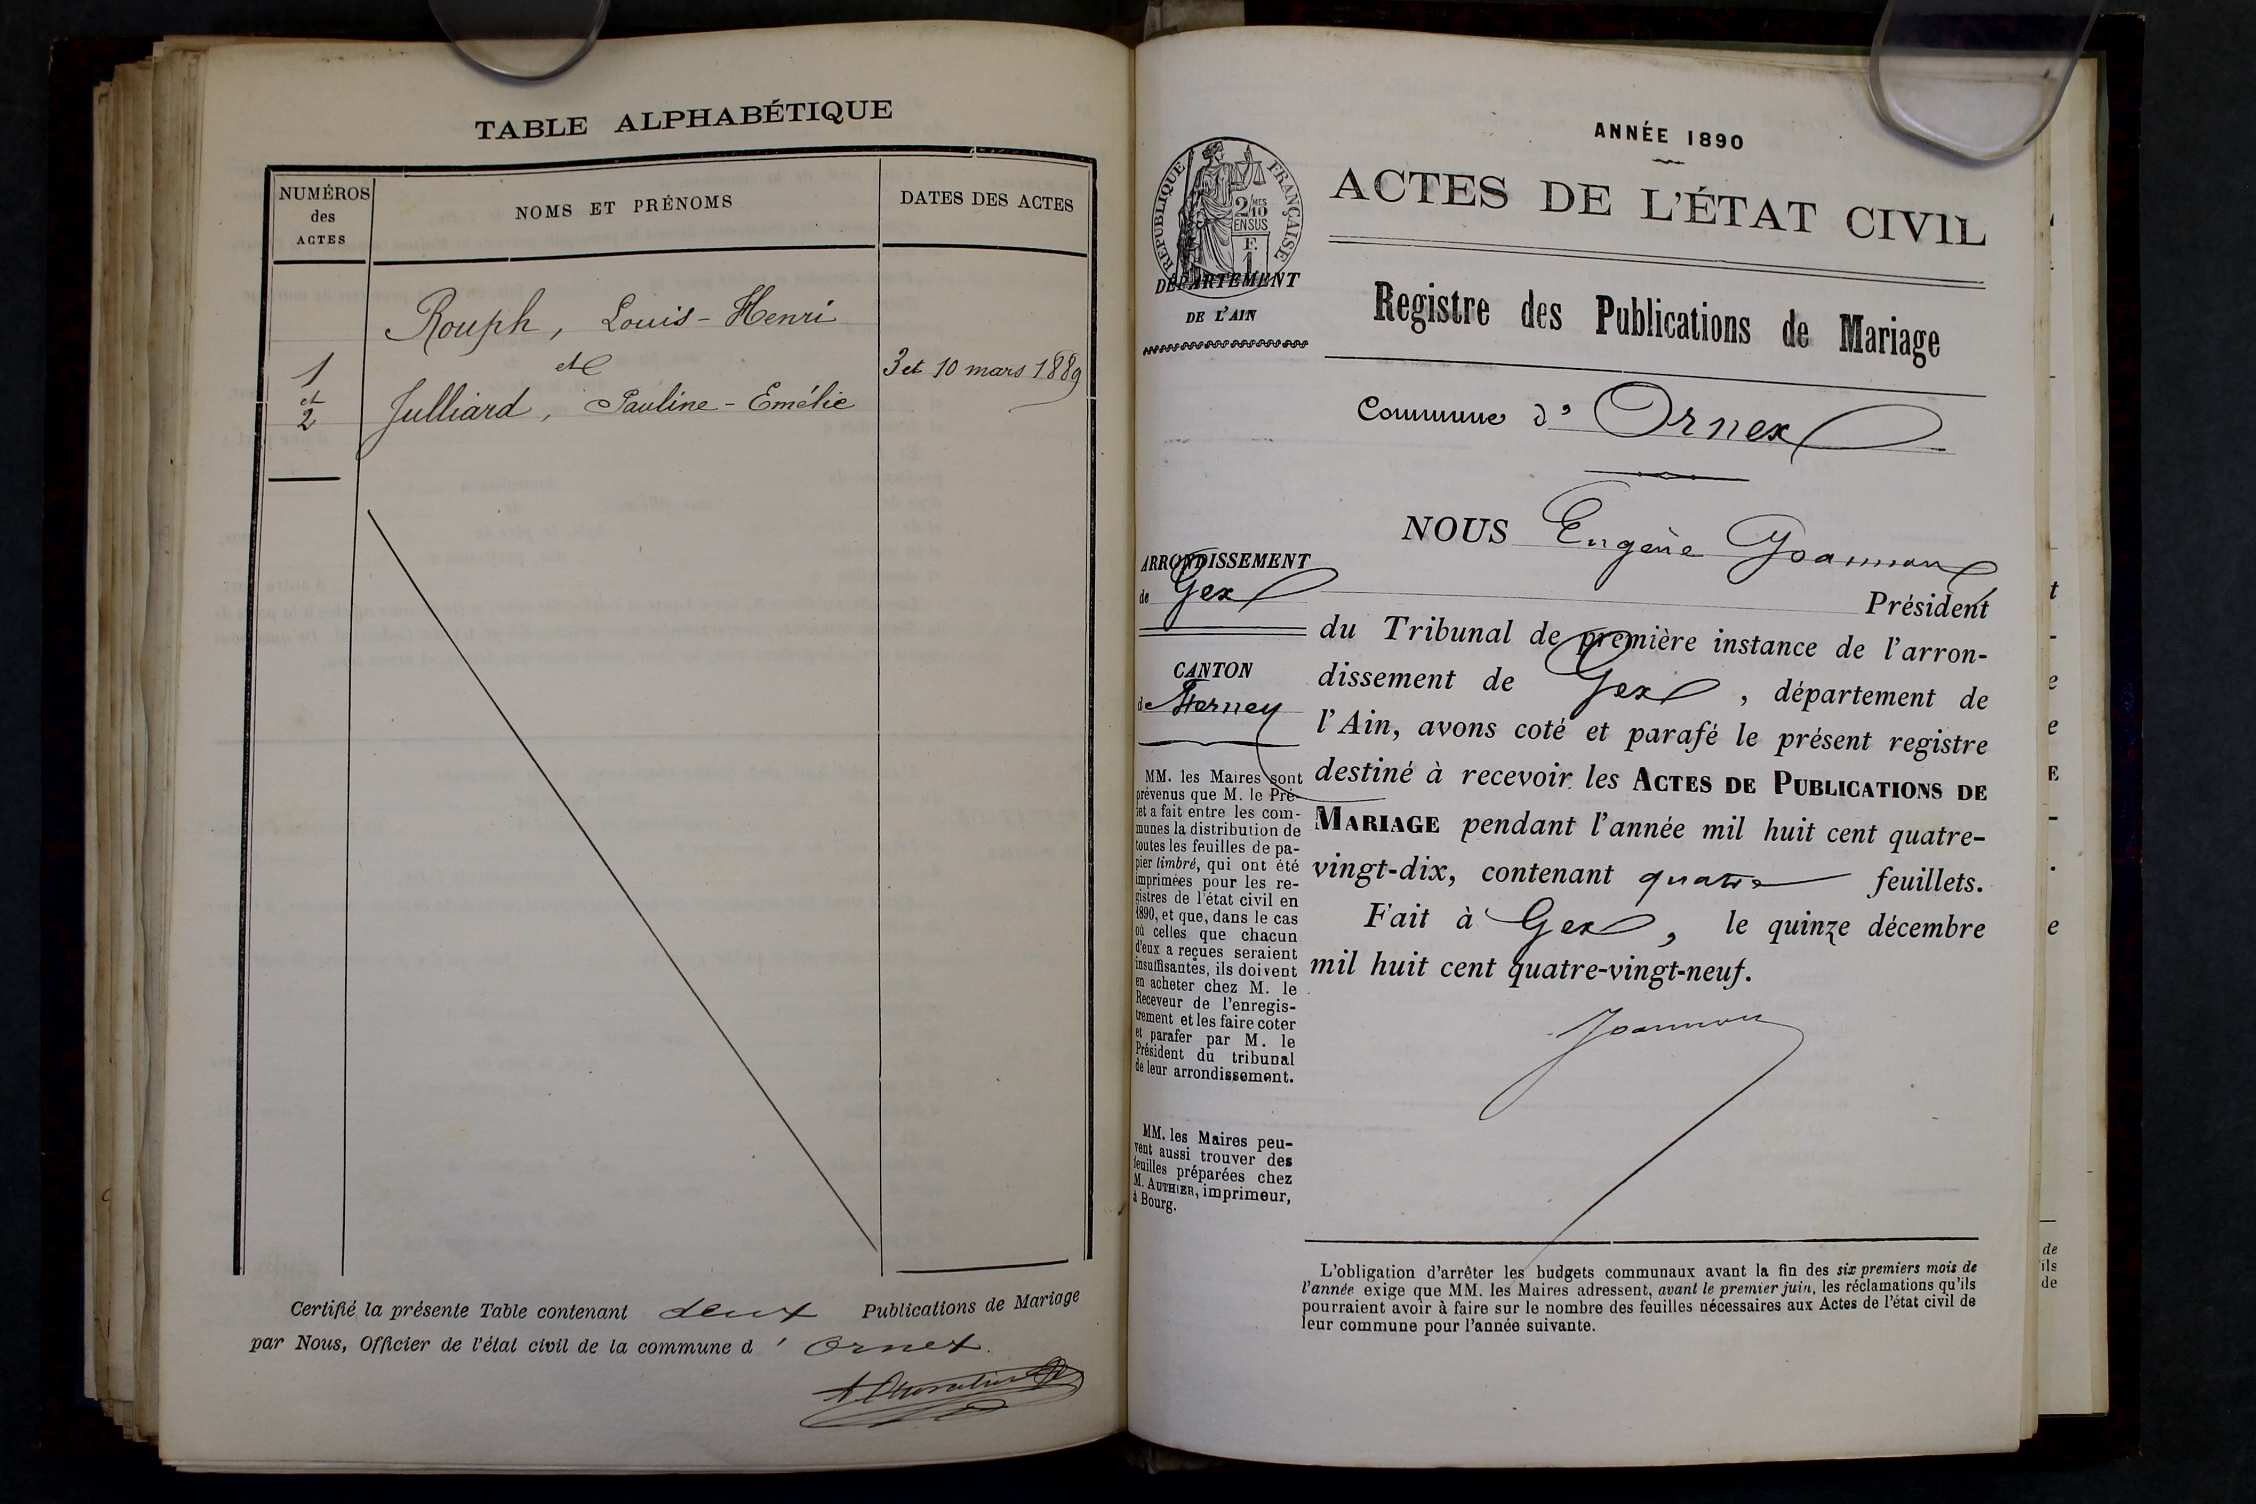 TABLE ALPHABÉTIQUE
NUMÉROS
des
ACTES
NOMS ET PRÉNOMS
DATES DES ACTES
Rouph, Louis-Henri
1 et 3 et 10 mars 1889
et
2 Julliard, Pauline-Emélie
Certifié la présente Table contenant deux Publications de Mariage
par Nous, Officier de l'état civil de la commune d' Ornex.
ANNÉE 1890
ACTES DE L'ÉTAT CIVIL
RÉPUBLIQUE FRANÇAISE
2/10 MES
EN SUS
F.
1
DÉPARTEMENT
DE L'AIN
Registre des Publications de Mariage
Commune d' Ornex
ARRONDISSEMENT
de Gex
CANTON
de Ferney
MM. les Maires sont
prévenus que M. le Pré-
fet a fait entre les com-
munes la distribution de
toutes les feuilles de pa-
pier timbré, qui ont été
imprimées pour les re-
gistres de l'état civil en
1890, et que, dans le cas
où celles que chacun
d'eux a reçues seraient
insuffisantes, ils doivent
en acheter chez M. le
Receveur de l'enregis-
trement et les faire coter
et parafer par M. le
Président du tribunal
de leur arrondissement.
MM. les Maires peu-
vent aussi trouver des
feuilles préparées chez
M. AUTHIER, imprimeur,
à Bourg.
NOUS Eugène Joannon
Président
du Tribunal de première instance de l'arron-
dissement de Gex, département de
l'Ain, avons coté et parafé le présent registre
destiné à recevoir les ACTES DE PUBLICATIONS DE
MARIAGE pendant l'année mil huit cent quatre-
vingt-dix, contenant quatre feuillets.
Fait à Gex, le quinze décembre
mil huit cent quatre-vingt-neuf.
Joannon
L'obligation d'arrêter les budgets communaux avant la fin des six premiers mois de
l'année exige que MM. les Maires adressent, avant le premier juin, les réclamations qu'ils
pourraient avoir à faire sur le nombre des feuilles nécessaires aux Actes de l'état civil de
leur commune pour l'année suivante.